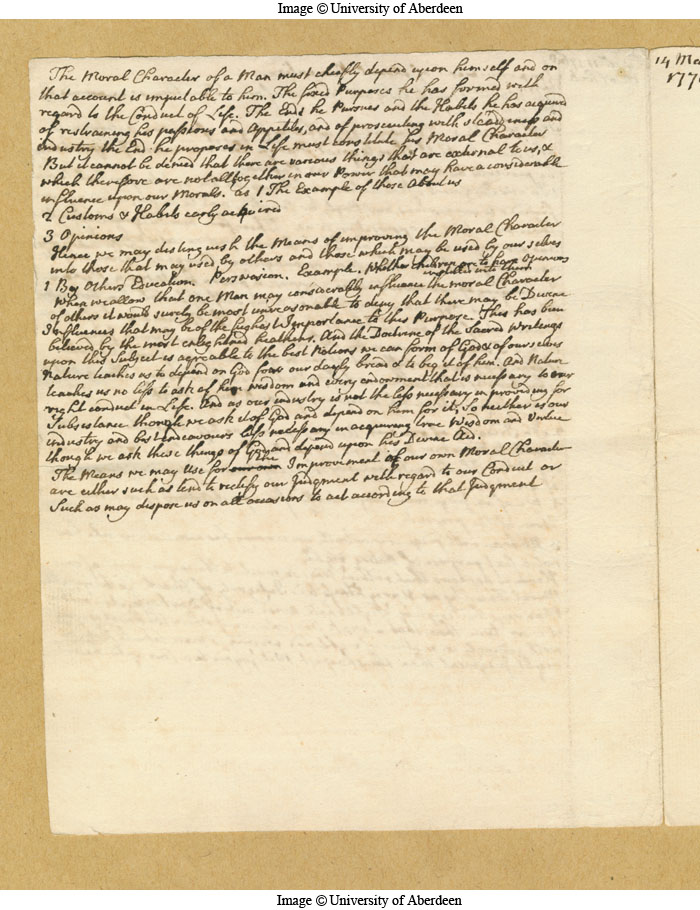 Image © University of Aberdeen
The Moral Character of a Man must chiefly depend upon himself and on
that account is imputable to him. The fixed Purposes he has formed with
regard to the Conduct of Life. The Ends he Pursues and the Habits he has acquired
of restraining his passions and Appetites, and of prosecuting with steadiness and
industry the End he proposes in Life must constitute his Moral Character
But it cannot be denied that there are various things that are external to us, &
which therefore are not alltogether in our Power that may have a considerable
influence upon our Morals. as 1 The Example of those About us
2 Customs & Habits early acquired
3 Opinions
Hence we may distinguish the Means of improving the Moral Character
into those that may used by others and those which may be used by our selves
1 By Others Education. Perswasion. Example. Whether Children are to have Opinions
instilled into them
When we allow that one Man may considerably influence the moral Character
of others it would surely be most unreasonable to deny that there may be Divine
Influences that may be of the highest Importance to this Purpose. This has been
believed by the most enlightned heathens. And the Doctrine of the Sacred Writings
upon this Subject is agreable to the best Notions we can form of God & of our selves
Nature teaches us to depend on God for our dayly bread & to beg it of him. And Nature
teaches us no less to ask of him wisdom and every endowment that is necessary to
right conduct in Life. And as our industry is not the less necessary in providing for
Subsistance though we ask it of God and depend on him for it, So neither is our
industry and best endeavours less necessary in acquiring true Wisdom and Virtue
though we ask these things of God and depend upon his Divine Aid.
The Means we may Use for the Improvement of our own Moral Character
are either such as tend to rectify our Judgment with regard to our Conduct or
Such as may dispose us on all occasions to act according to that Judgment
14
Image © University of Aberdeen